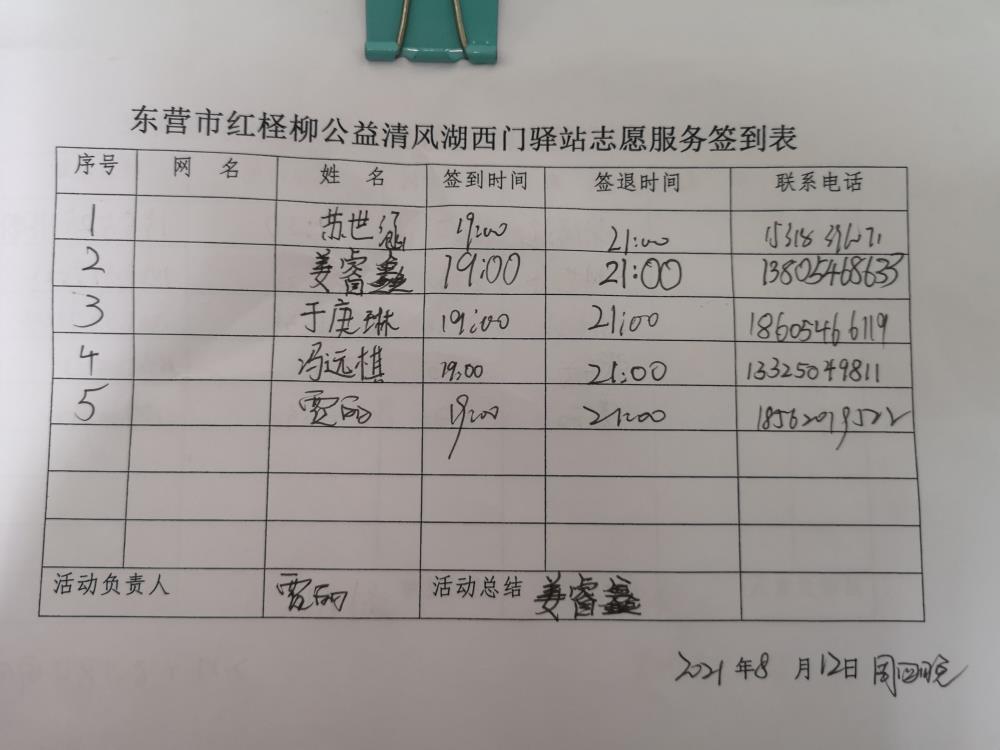 东营市红柽柳公益清风湖西门驿站志愿服务签到表
序号 网 名 姓 名 签到时间 签退时间 联系电话
1 苏世 19:00 21:00 15318
2 姜睿鑫 19:00 21:00 13805468633
3 于庚琳 19:00 21:00 18605466119
4 冯远棋 19:00 21:00 13325049811
5 贾丽 19:00 21:00
活动负责人 贾丽 活动总结 姜睿鑫
2021年8月12日 周四晚